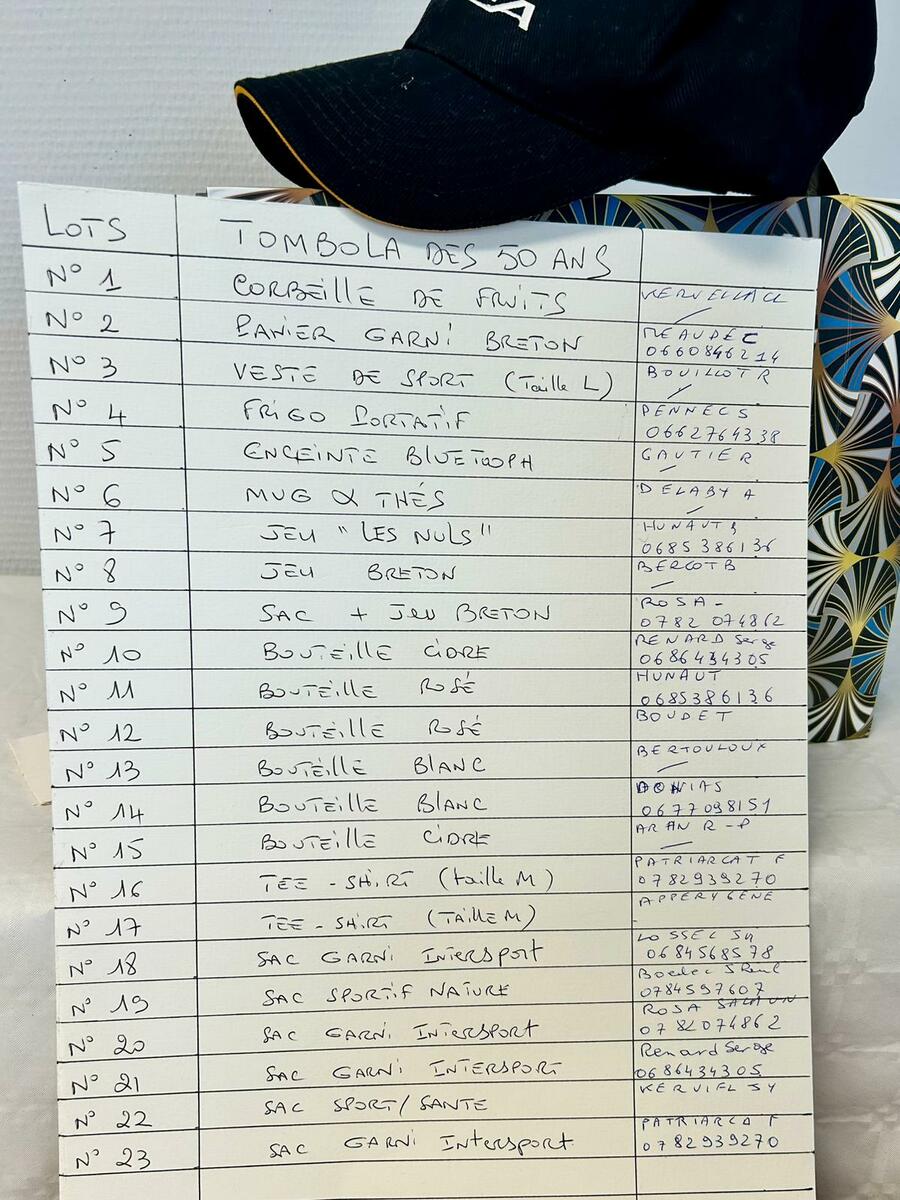 LOTS TOMBOLA DES 50 ANS
N° 1 CORBEILLE DE FRUITS KERVELLA CL
N° 2 PANIER GARNI BRETON MEAUDEC
0660846214
N° 3 VESTE DE SPORT (Taille L) BOUILLOT R
N° 4 FRIGO PORTATIF PENNEC S
0662764338
N° 5 ENCEINTE BLUETOOPH GAUTIER
N° 6 MUG & THÉS DELABY A
N° 7 JEU "LES NULS" HUNAUT
0685386136
N° 8 JEU BRETON BERCOT B
N° 9 SAC + JEU BRETON ROSA -
0782074862
N° 10 BOUTEILLE CIDRE RENARD Serge
0686434305
N° 11 BOUTEILLE ROSÉ HUNAUT
0685386136
N° 12 BOUTEILLE ROSÉ BOUDET
N° 13 BOUTEILLE BLANC BERTOULOUX
N° 14 BOUTEILLE BLANC
0677098151
N° 15 BOUTEILLE CIDRE ARAN R-P
N° 16 TEE-SHIRT (taille M) PATRIARCAT F
0782939270
N° 17 TEE-SHIRT (TAILLE M) APPERY GENE
N° 18 SAC GARNI INTERSPORT LOSSEC
0684568578
N° 19 SAC SPORTIF NATURE
0784597607
N° 20 SAC GARNI INTERSPORT ROSA
0782074862
N° 21 SAC GARNI INTERSPORT Renard Serge
0686434305
N° 22 SAC SPORT/SANTE KERVIEL SY
N° 23 SAC GARNI Intersport PATRIARCA F
0782939270